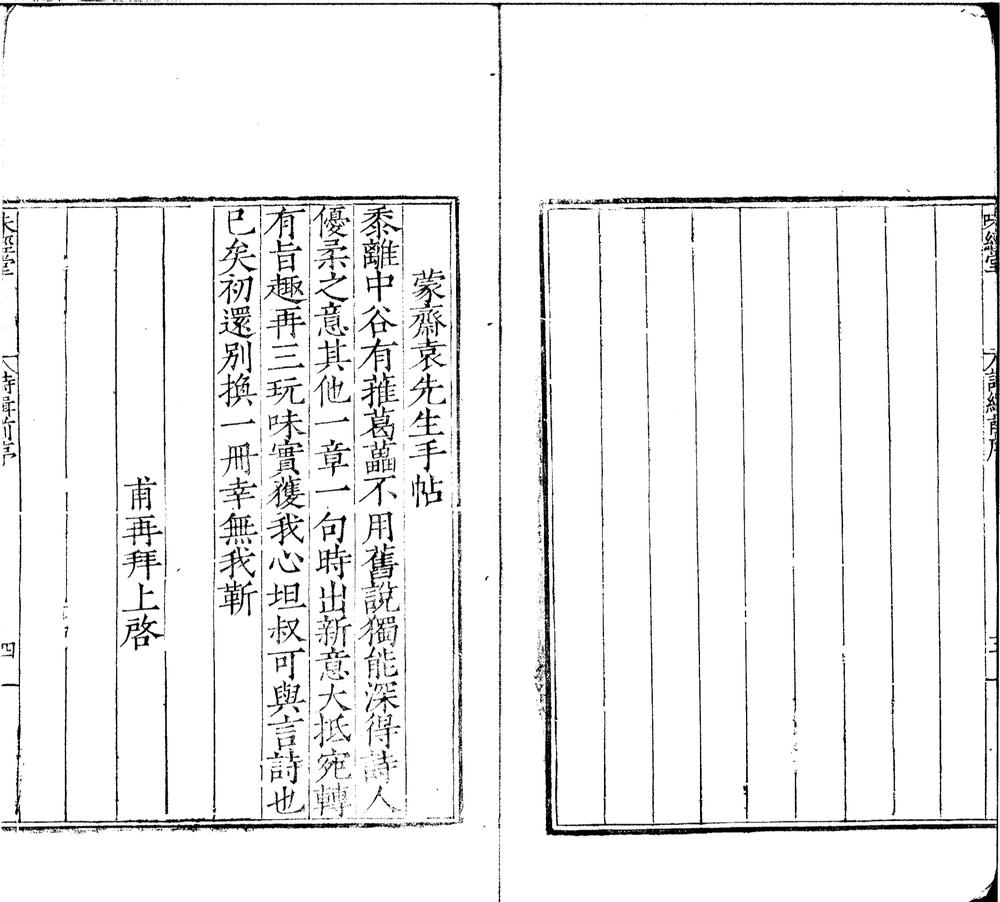 味經堂
詩緝前序
蒙齋袁先生手帖
黍離中谷有蓷葛藟不用舊說獨能深得詩人
優柔之意其他一章一句時出新意大抵宛轉
有旨趣再三玩味實獲我心坦叔可與言詩也
已矣初還別換一冊幸無我靳
甫再拜上啓
味經堂
詩緝前序
四